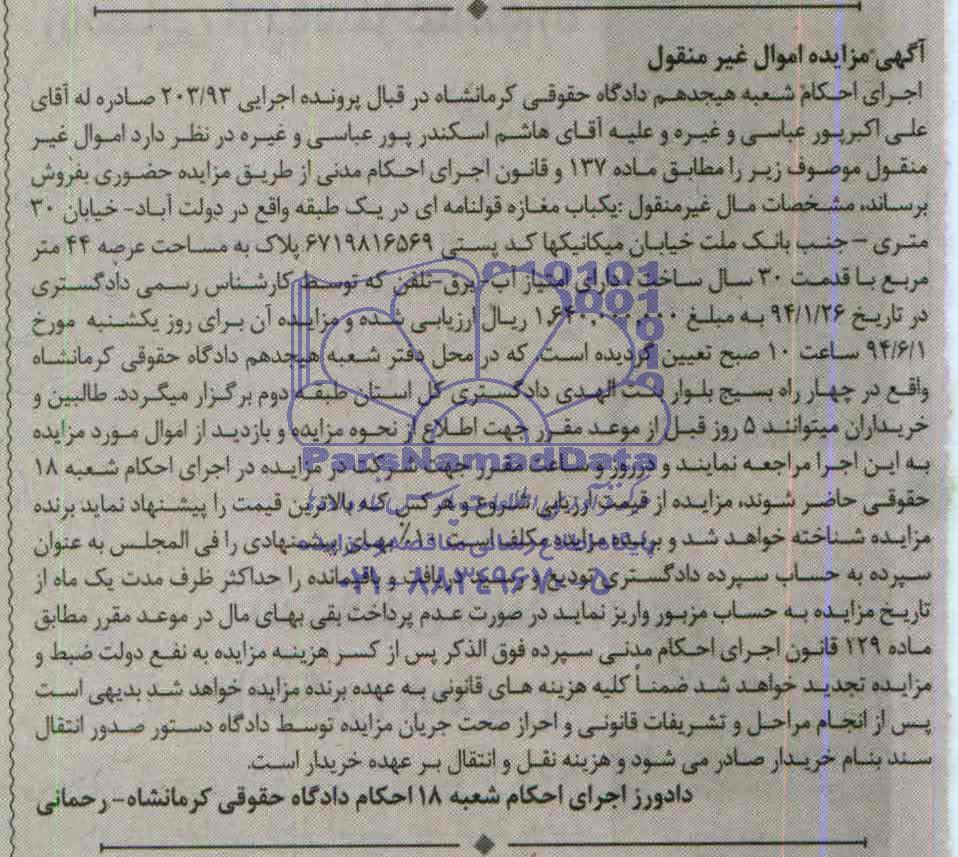 آگهی مزایده اموال غیر منقول
اجرای احکام شعبه هیجدهم دادگاه حقوقی کرمانشاه در قبال پرونده اجرایی ۲۰۳/۹۳ صادره له آقای
علی اکبرپور عباسی و غیره و علیه آقای هاشم اسکندر پور عباسی و غیره در نظر دارد اموال غیر
منقول موصوف زیر را مطابق ماده ۱۳۷ و قانون اجرای احکام مدنی از طریق مزایده حضوری بفروش
برساند، مشخصات مال غیرمنقول :یکباب مغازه قولنامه ای در یک طبقه واقع در دولت آباد- خیابان ۳۰
متری – جنب بانک ملت خیابان میکانیکها کد پستی ۶۷۱۹۸۱۶۵۶۹ پلاک به مساحت عرصه ۴۴ متر
مربع با قدمت ۳۰ سال ساخت ، دارای امتیاز آب- برق-تلفن که توسط کارشناس رسمی دادگستری
در تاریخ ۹۴/۱/۲۶ به مبلغ ۱,۶۴۰,۰۰۰,۰۰۰ ریال ارزیابی شده و مزایده آن برای روز یکشنبه مورخ
۹۴/۶/۱ ساعت ۱۰ صبح تعیین گردیده است. که در محل دفتر شعبه هیجدهم دادگاه حقوقی کرمانشاه
واقع در چهار راه بسیج بلوار بنت الهدی دادگستری کل استان طبقه دوم برگزار میگردد. طالبین و
خریداران میتوانند ۵ روز قبل از موعد مقرر جهت اطلاع از نحوه مزایده و بازدید از اموال مورد مزایده
به این اجرا مراجعه نمایند و درروز و ساعت مقرر جهت شرکت در مزایده در اجرای احکام شعبه ۱۸
حقوقی حاضر شوند، مزایده از قیمت ارزیابی شروع و هر کس که بالاترین قیمت را پیشنهاد نماید برنده
مزایده شناخته خواهد شد و برنده مزایده مکلف است ۱۰٪ بهای پیشنهادی را فی المجلس به عنوان
سپرده به حساب سپرده دادگستری تودیع و رسید دریافت و باقیمانده را حداکثر ظرف مدت یک ماه از
تاریخ مزایده به حساب مزبور واریز نماید در صورت عدم پرداخت بقی بهای مال در موعد مقرر مطابق
ماده ۱۲۹ قانون اجرای احکام مدنی سپرده فوق الذکر پس از کسر هزینه مزایده به نفع دولت ضبط و
مزایده تجدید خواهد شد ضمناً کلیه هزینه های قانونی به عهده برنده مزایده خواهد شد بدیهی است
پس از انجام مراحل و تشریفات قانونی و احراز صحت جریان مزایده توسط دادگاه دستور صدور انتقال
سند بنام خریدار صادر می شود و هزینه نقل و انتقال بر عهده خریدار است.
دادورز اجرای احکام شعبه ۱۸ احکام دادگاه حقوقی کرمانشاه- رحمانی
ParsNamadData
پایگاه اطلاع رسانی مناقصه و مزایده
۰۲۱-۸۸۳۴۹۶۷۰